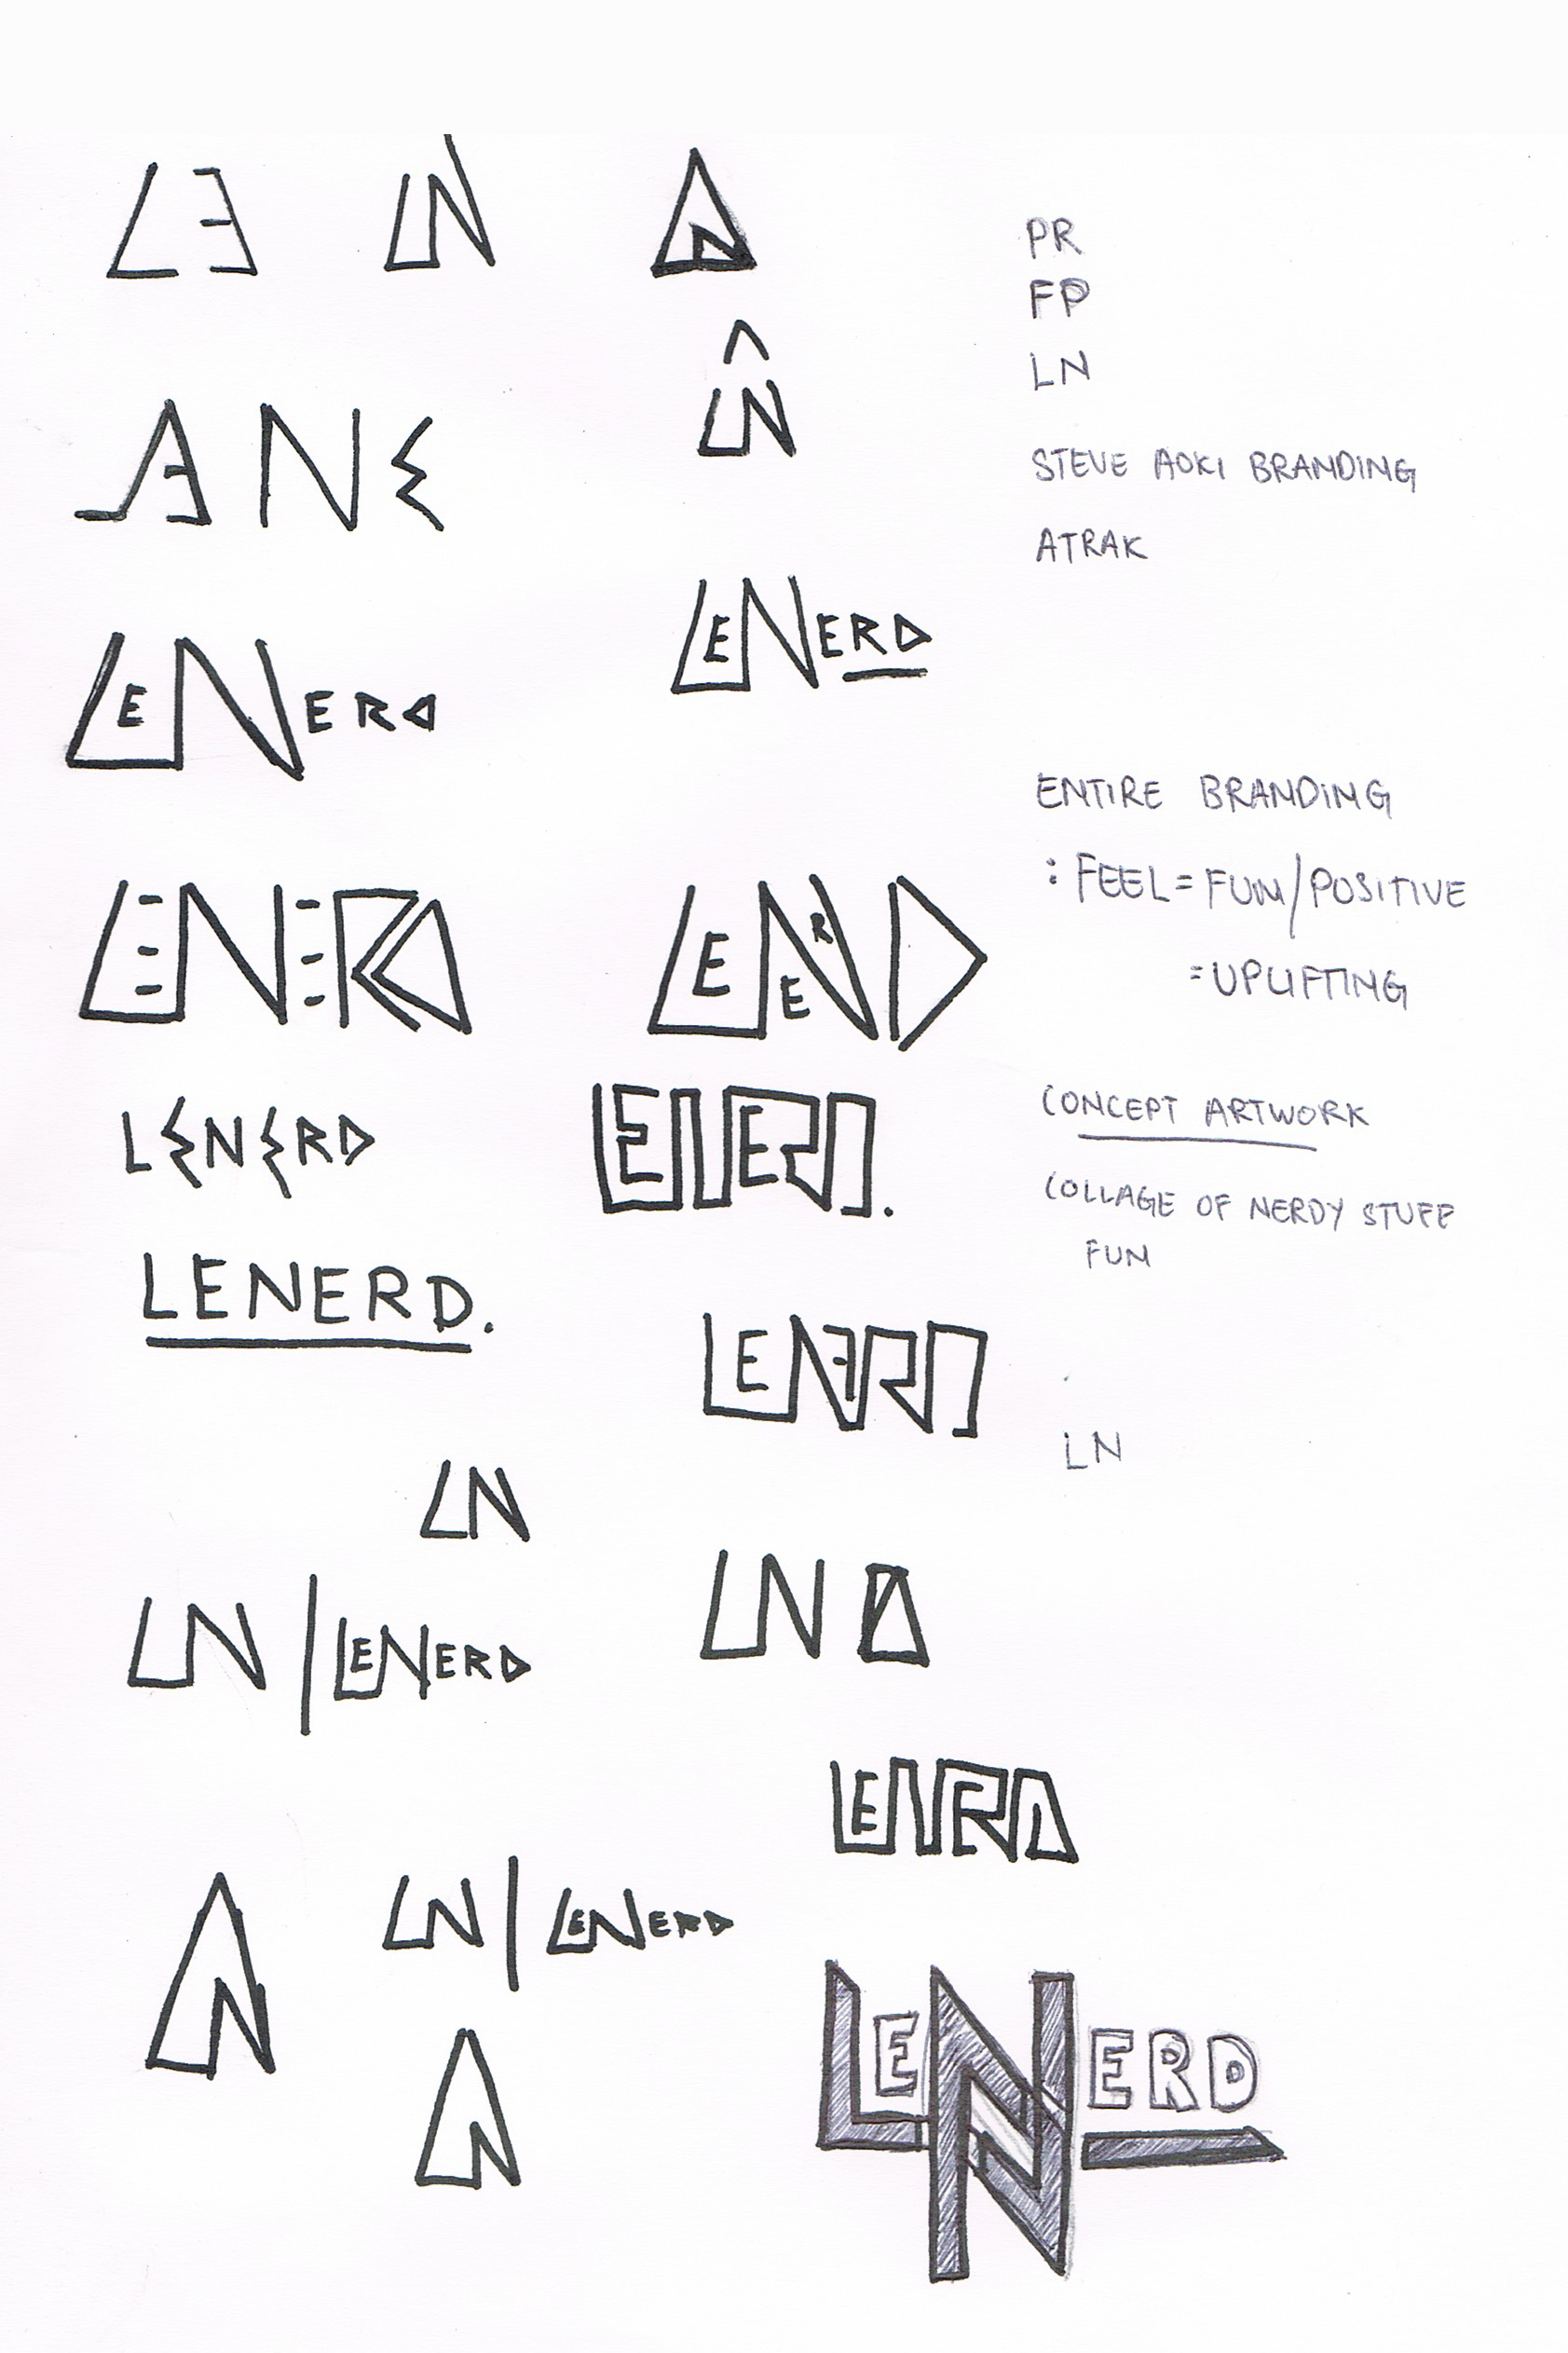 LE LN
LN
A N E
LENERD
LENERD
LENERD LENERD
LENERD
LENERD.
LENERD
LN
LN
LN | LENERD
LN | LENERD
LENERD
PR
FP
LN
STEVE AOKI BRANDING
ATRAK
ENTIRE BRANDING
: FEEL = FUN/POSITIVE
= UPLIFTING
CONCEPT ARTWORK
COLLAGE OF NERDY STUFF
FUN
LN